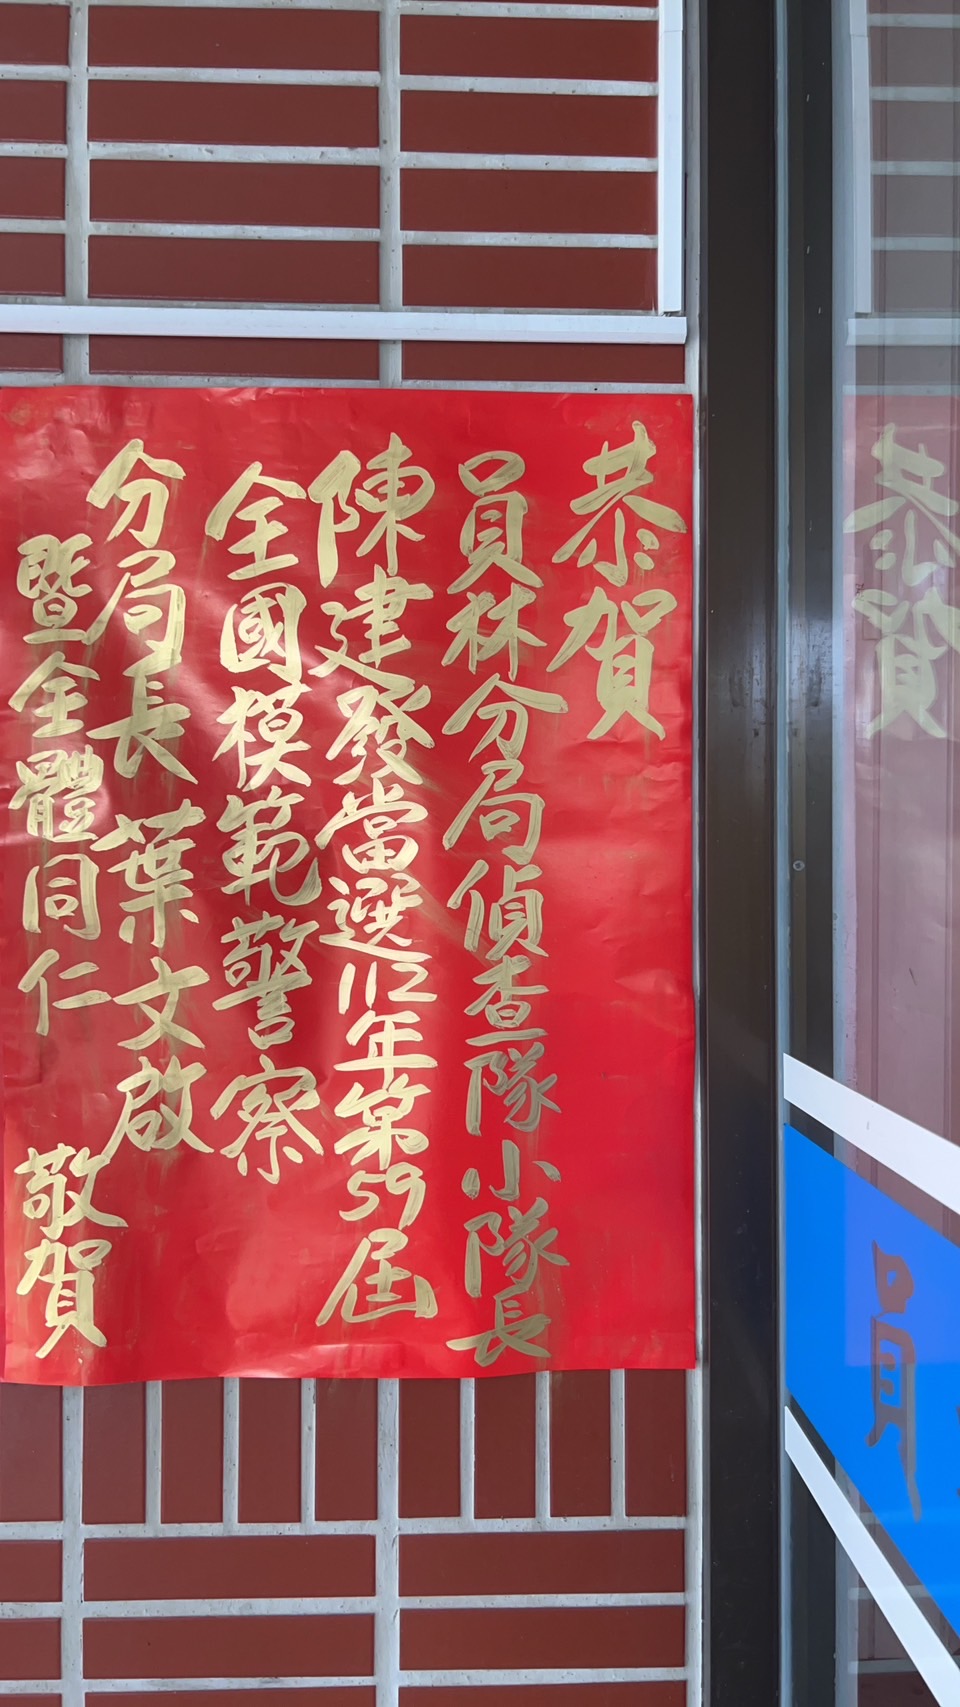 恭賀
員林分局偵查隊小隊長
陳建發當選112年第59屆
全國模範警察
分局長葉文啟
暨全體同仁 敬賀
員